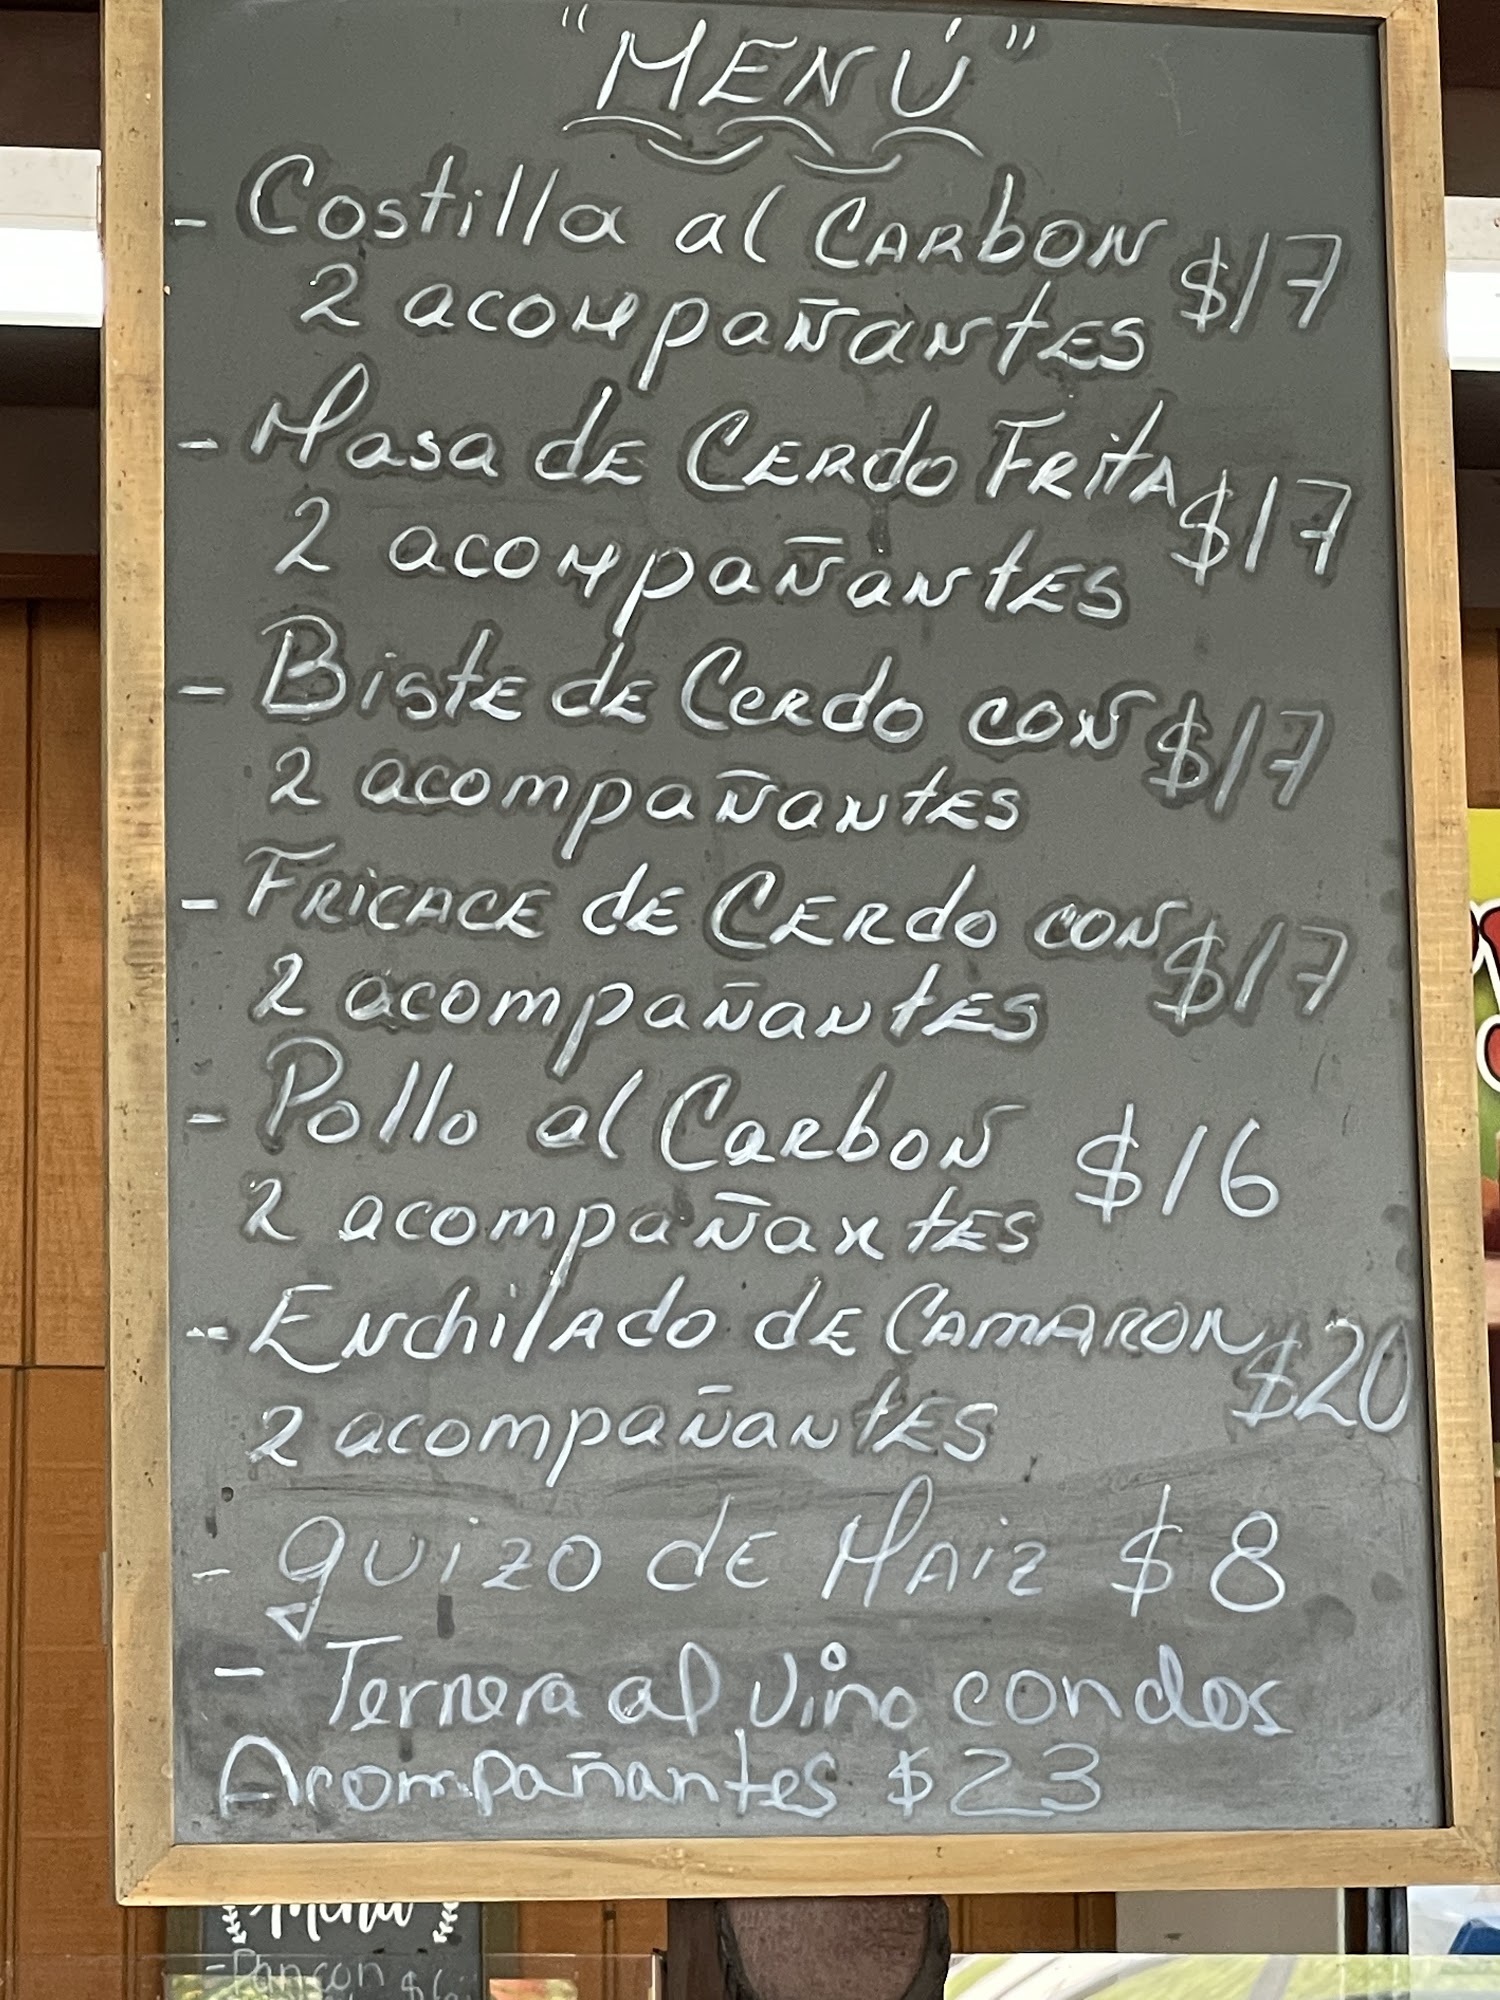 "MENÚ"
- Costilla al CARbON $17
2 acompañantes
- Masa de Cerdo Frita $17
2 acompañantes
- Biste de Cerdo con $17
2 acompañantes
- Fricace de Cerdo con $17
2 acompañantes
- Pollo al Carbon $16
2 acompañantes
- Enchilado de Camaron $20
2 acompañantes
- guizo de Maiz $8
- Ternera al vino con dos
Acompañantes $23
Menu
- Pan con